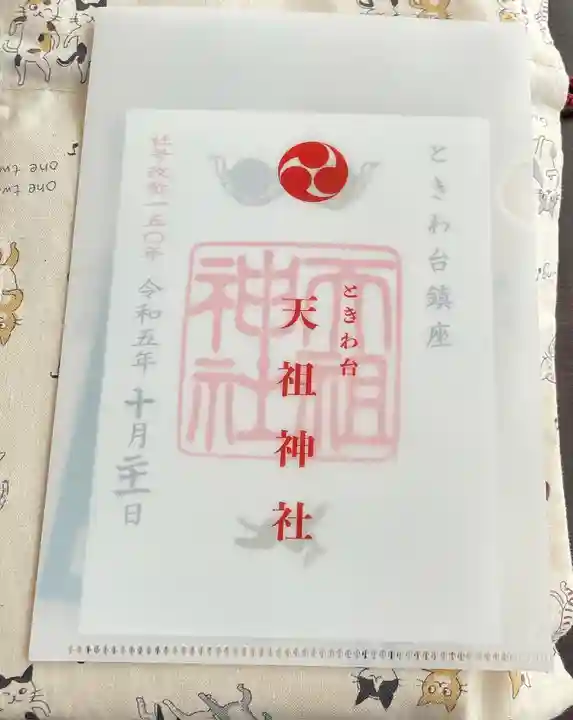 ときわ台鎮座
ときわ台
天祖神社
天祖神社
社号改称一五〇年
令和五年十月二十一日
one two
one tw